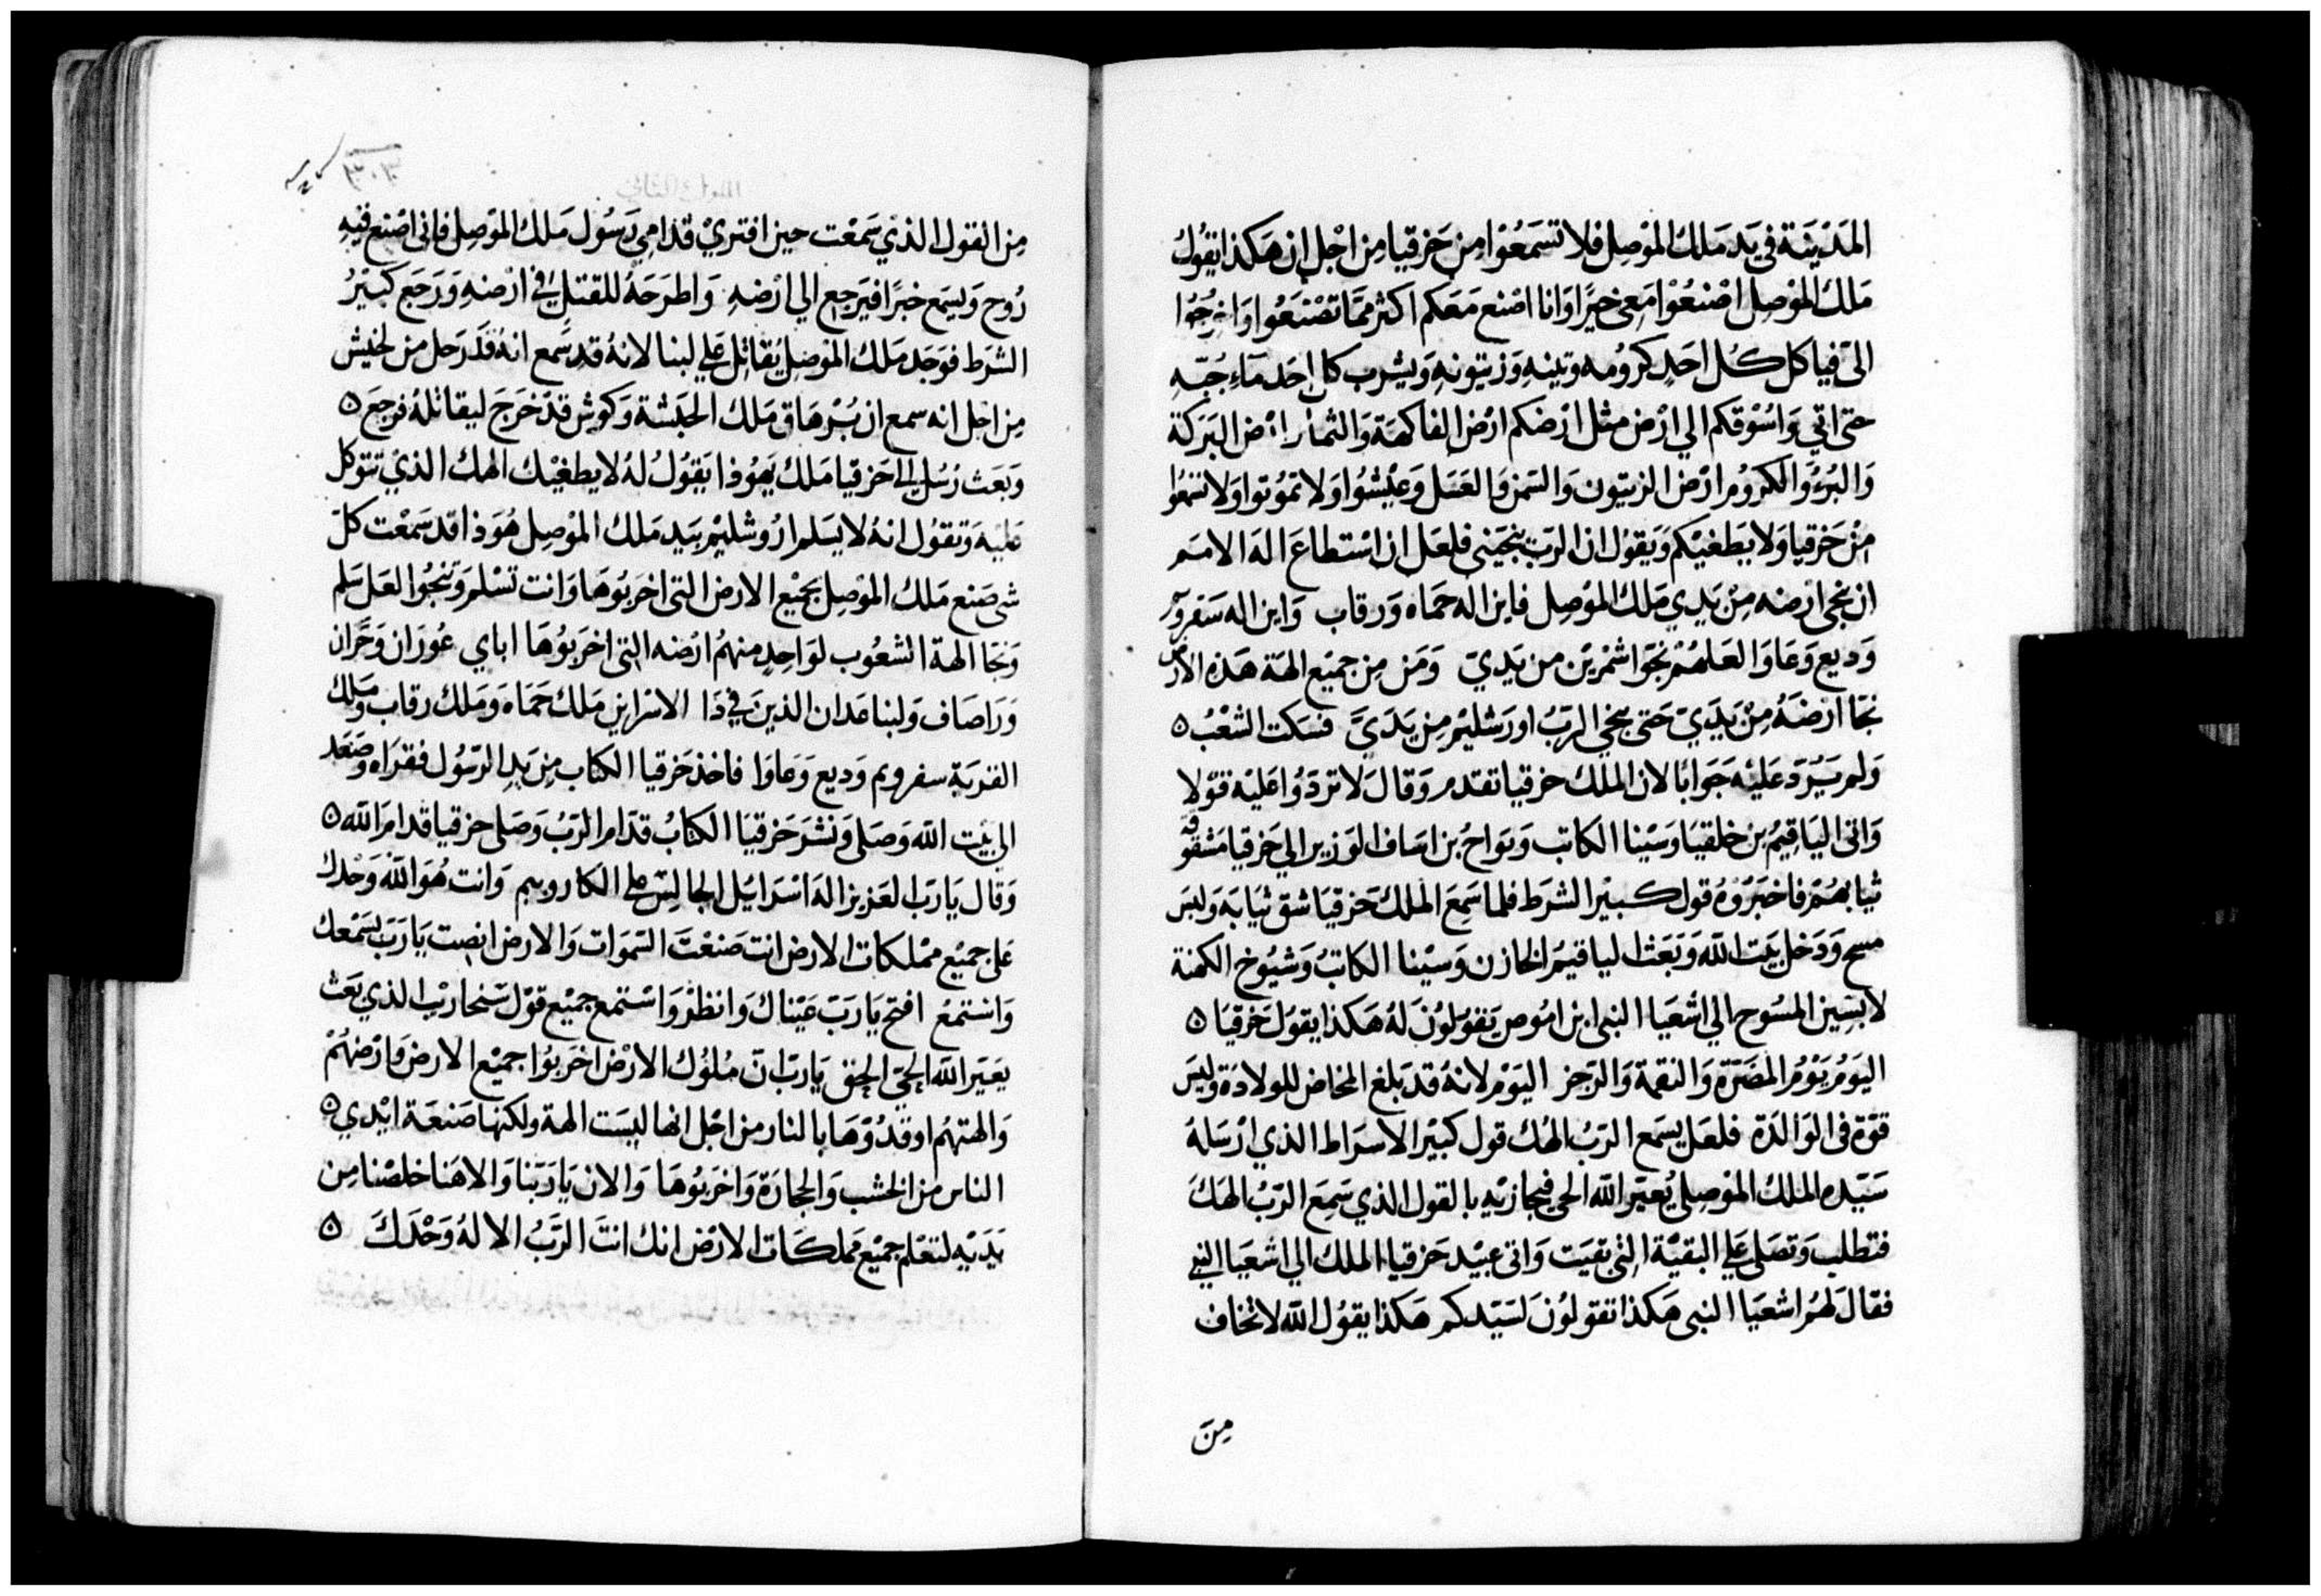 المَدْينَة في يَد مَلك المَوْصِل فلا تسَمَعُوْا مِن حَزقيا مِن اجْل ان هَكذا يقُولُ
مَلك المَوْصِل اصْنعُوْا مَعي خيرًا وَانا اصْنع مَعَكم اكثر ممَّا تصْنَعُوا وَاخرُجُوا
اليّ فياكل كُل احَدٍ كرومُه وتينهِ وَزيتونهِ وَيشرب كل احَد مَآءِ جُبّهِ
حتى اتي وَاسُوْقكم الي ارْض مثل ارْضكم ارْض الفاكهَة وَالثمار ارْض البَركة
وَالبُرّ وَالكرُوْم ارْض الزيتون وَالسَمن وَالعَسَل وَعيْشُوا وَلا تمُوْتوا وَلا تسمَعُوا
مِنْ حَزقيا وَلا يطَغيْكم وَيقوْل ان الرَبّ ينجيَني فلعَل ان اسْتطاعَ الهَ الامَم
ان نجي ارْضه مِنْ يَدي مَلك المَوْصِل فاين اله حَمَاه وَرقاب وَاين اله سَفروَيم
وَديع وَعَاوَا لعَلهُمْ نجَوْا شمْرين من يَديّ وَمَن مِن جميْع الهَة هَذه الارض
نجَا ارْضهُ مِنْ يَدَيّ حَتى ينجي الرَبُ اورَشليْم مِن يَدَيَّ فسَكت الشعْبُ ٥
وَلم يَرُدّ عَليْه جَوَابًا لان الملك حزقيا تقدم وَقالَ لا تردّوُا عَليْه قوْلا
وَاتى اليَاقيمُ بن خلقيَا وَسَيْنا الكاتب وَيوَاحُ بن اسَاف الوَزير الي حَزقيا مَشقوقَه
ثيابهُمْ فاخبَرُوْهُ قول كبيْر الشرَط فلما سَمِعَ المَلك حَزقيَا شق ثيَابَه وَلبسَ
مسح وَدَخل بيَت الله وَبَعَث الياقيمُ الخازن وَسيْنا الكاتبُ وَشيُوخ الكهنة
لابسِين المسُوح الي اشعَيا النبي ابن امُوص يَقوْلوُنَ لهُ هَكذا يقوَل حَزقيَا ٥
اليَومُ يَوْمُ المضَرّة وَالنقمة وَالرَجز اليَوْم لانهُ قد بَلغ المخاض للولادَة وَليسَ
قوّة في الوَالدَة فلعَل يسَمع الرَبُ الهُك قول كبيْر الاسرَاط الذي ارْسَلهُ
سَيّده الملك المَوْصِلي يُعيّر الله الحي فيجازيْه بالقول الذي سَمِعَ الرَبُ الهَكَ
فتطلب وَتصَلي عَلي البقيّة التي بقيَت وَاتى عبيْد حَزقيا الملك الي اشعَيا النبي
فقالَ لهُم اشعَيا النبي هَكذا تقولوُنَ لسَيّدكم هَكذا يقوُل الله لا تخاف
مِنَ
مِن القول الذيْ سَمعْت حين افتريْ قدامي رَسُول مَلك المَوْصِل فاني اصْنع فيْهِ
رُوح وَيسمع خبرًا فيَرجع الي ارْضهِ وَاطرَحَهُ للقتل في ارْضهِ وَرَجَع كبيْرُ
الشرَط فوَجَد مَلك المَوْصِل يُقاتِل عَلي لبنا لانهُ قد سَمع انهُ قدَ رَحل من لخيش
مِن اجل انه سمع ان بُرْهَاق مَلك الحبَشة وَكوش قدْ خَرَجَ ليقاتلهُ فرجعَ ٥
وَبَعَث رُسُل الي حَزقيا مَلك يَهوُذا يَقوُلُ لهُ لا يطغيْك الهك الذيْ تتوَكل
عَليْه وَتقوُل انهُ لا يسَلم ارُوشليْم بيَد مَلك المَوْصِل هُوَ ذا قد سَمعْت كلّ
شى صَنع مَلك المَوْصِل بجميْع الارض التي اخرَبوُهَا وَانت تسْلم وَتنجُوا لعَل سَلم
وَنجَا الهة الشعُوب لوَاحِدٍ منهمُ ارْضه التي اخرَبوُهَا اباي عُوزَان وَحَرَّان
وَرَاصَاف وَلبنا عَدان الذينَ في دَا الاسْر اين مَلك حَمَاه وَمَلك رقاب وَمَلك
القريَة سفرويم وَديع وَعَاوَا فاخذ حَزقيا الكتاب مِن يَدِ الرَسُول فقرَاه وَصَعَد
الي بَيْت الله وَصَلى وَنشرَ حَزقيَا الكتابُ قدّام الرَبُ وَصَلى حزقيا قدامَ الله ٥
وَقال يَا رَب العَزيز الهَ اسْرَايْل الجالِسْ على الكاروبيم وَانت هُوَ الله وَحْدك
عَلى جميْع ممْلكات الارض انت صَنعْتَ السَموَات وَالارض انصِت يَا رَبّ بسَمْعك
وَانستمعُ افتح يَا رَبّ عَيْناك وَانظرْ وَاسْتمع جميْع قوْل سَنحاريْب الذي بَعَث
يعَيّر الله الحيّ الحق يَا ربّ انّ مُلوُك الارْض اخرَبوُا جميْع الارض وَارْضهُمْ
وَالهتهُم اوقدُوْهَا بالنار من اجْل انها ليسَت الهة ولكنها صَنعَة ايْدي ٥
الناس من الخشب وَالحجارَة وَاخرَبوُهَا وَالان يَا رَبّنا وَالاهَنا خلصْنا مِن
يَدَيْه لتعْلم جميْع مَملكَات الارْض انك انتَ الرَبُّ الالهُ وَحْدَكَ ٥